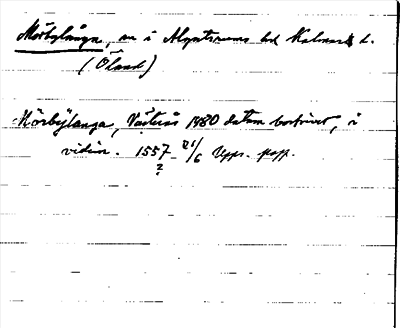 Mörbylånga, sn i Algutsrums hd Kalmar l.
(Öland)
Mörbÿlanga, Västerås 1480 datum bortrivet, i
vidim. 1557 21/6 Upps. papp.
?